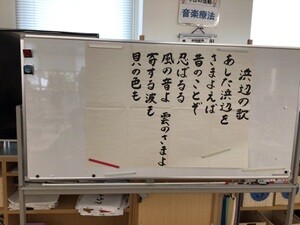 音楽療法
浜辺の歌
あした浜辺を
さまよえば
昔のことぞ
忍ばるる
風の音よ 雲のさまよ
寄する波も
貝の色も